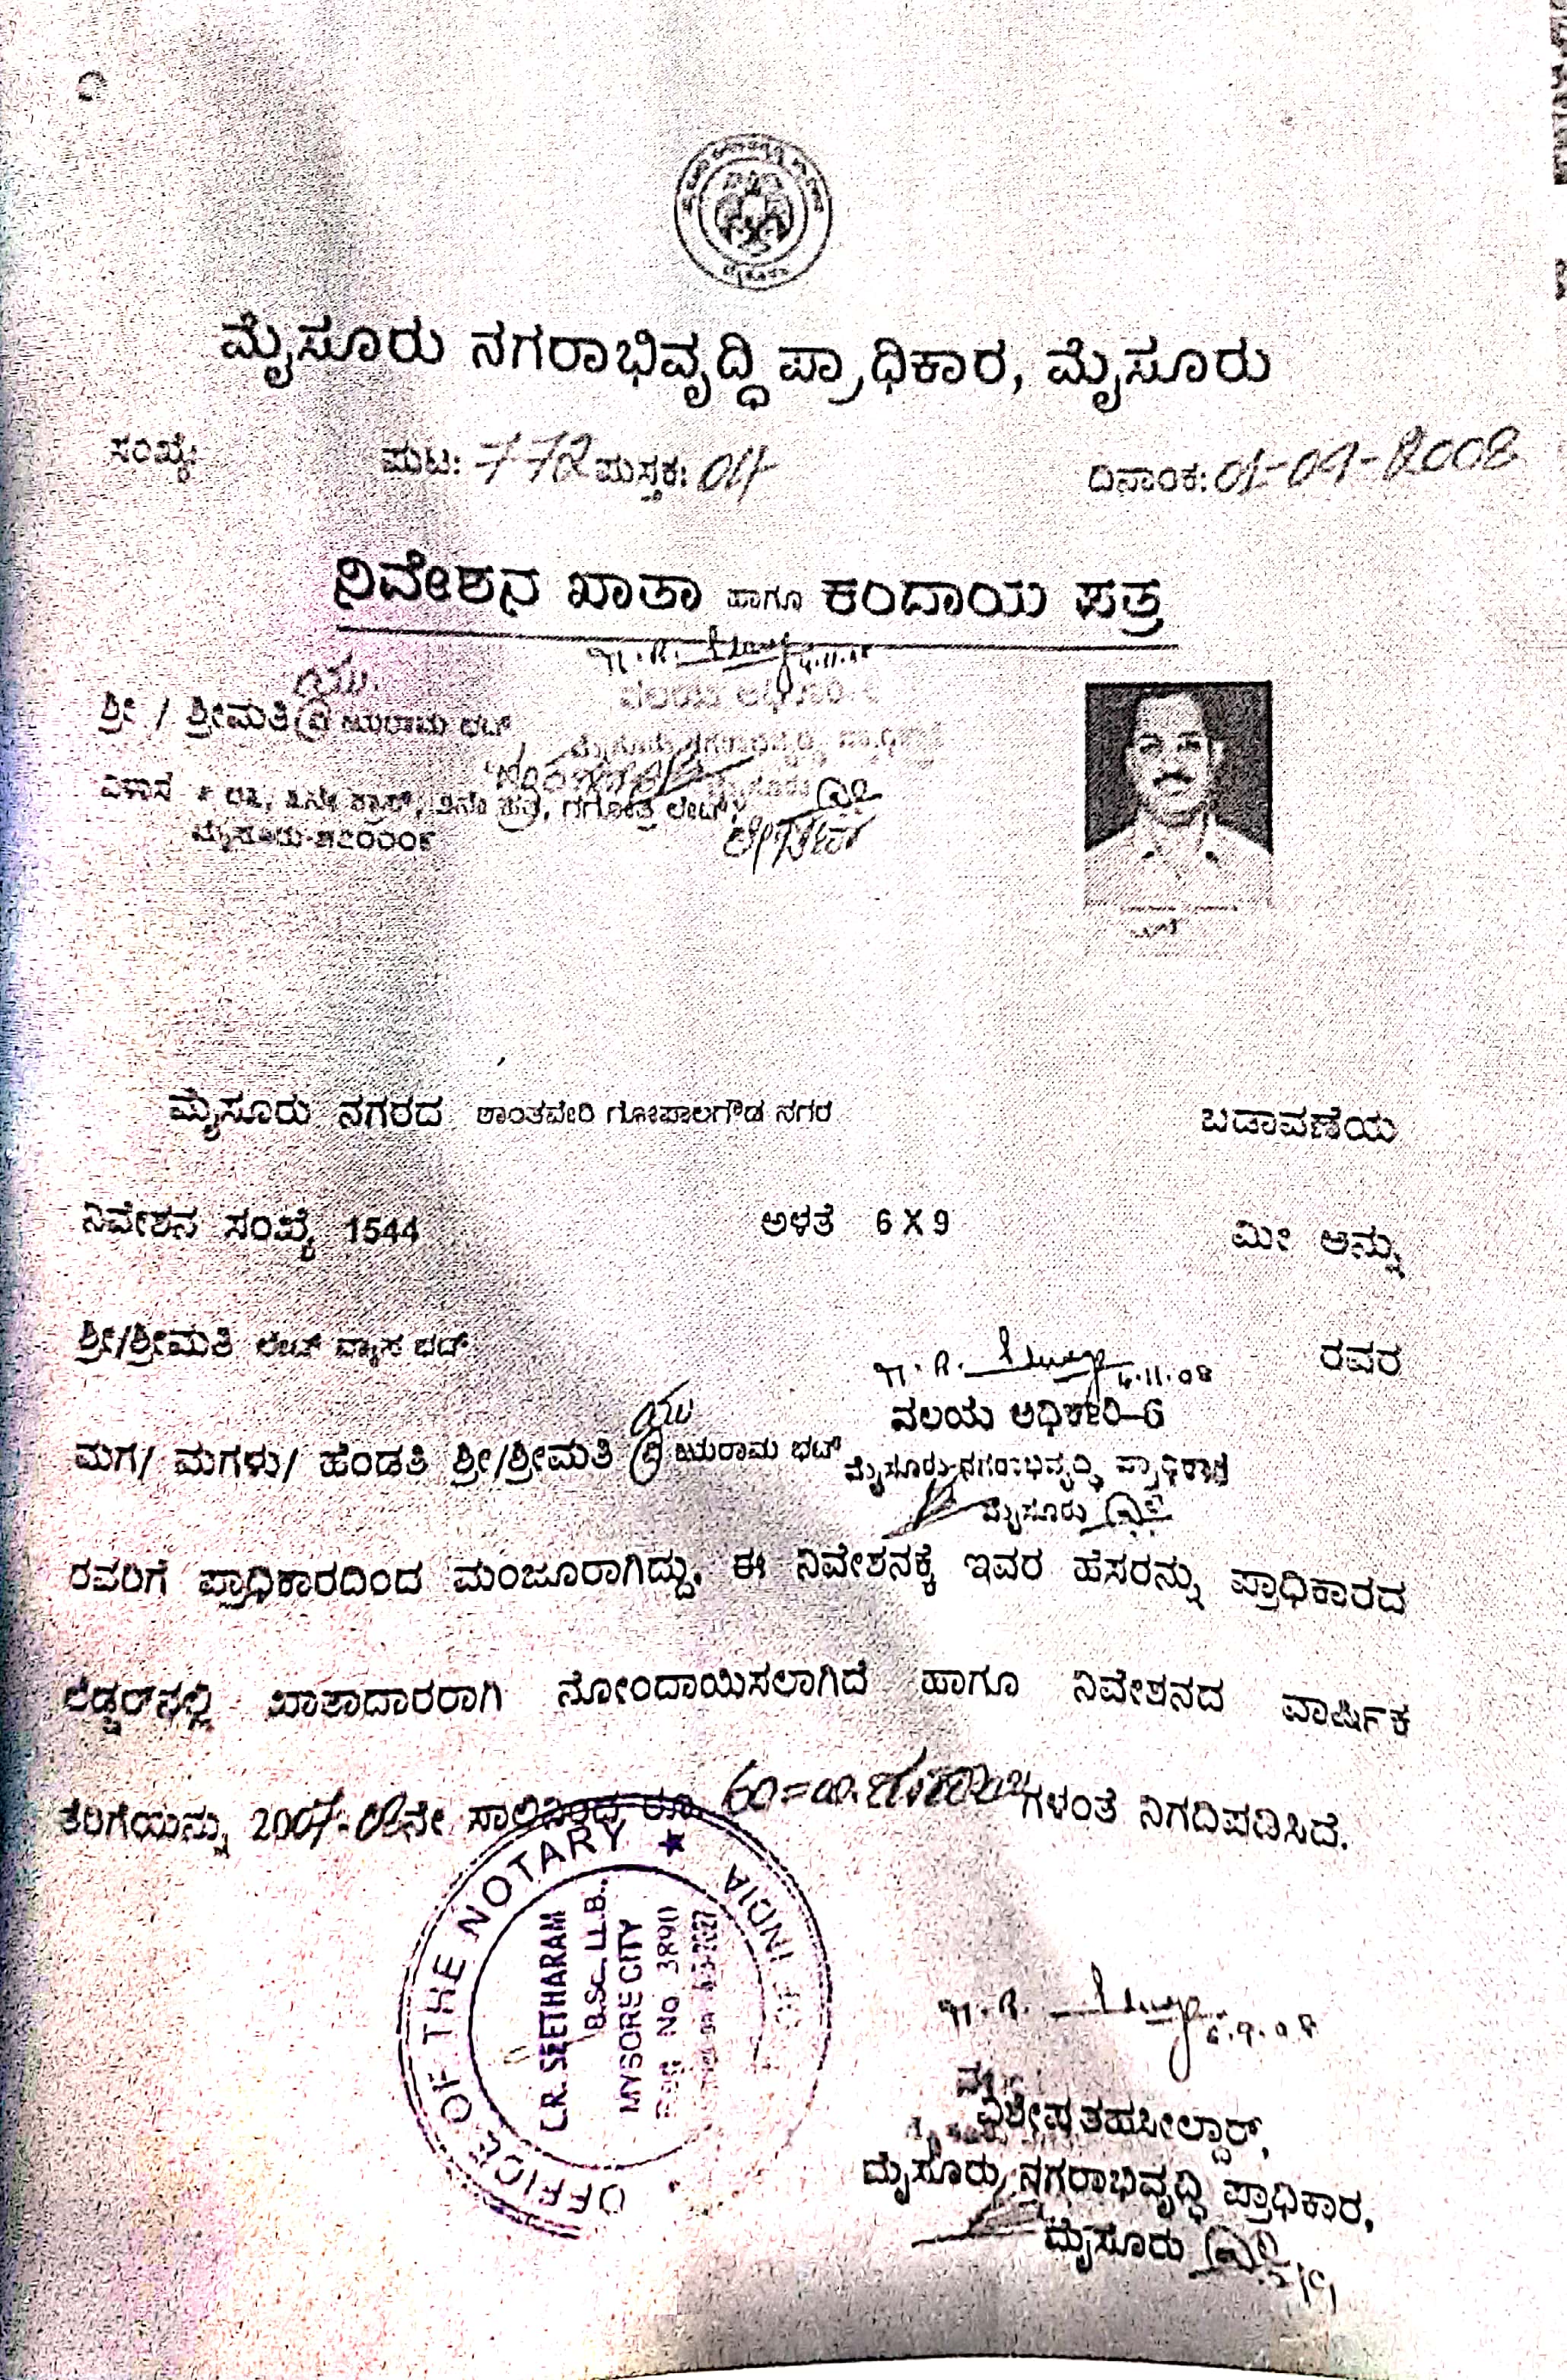 ಮೈಸೂರು ನಗರಾಭಿವೃದ್ಧಿ ಪ್ರಾಧಿಕಾರ, ಮೈಸೂರು
ಸಂಖ್ಯೆ: ಪುಟ: 772 ಪುಸ್ತಕ: 04 ದಿನಾಂಕ: 01-09-2008
ನಿವೇಶನ ಖಾತಾ ಹಾಗೂ ಕಂದಾಯ ಪತ್ರ
ಯು.
ಶ್ರೀ / ಶ್ರೀಮತಿ ಜಯರಾಮ ಭಟ್
ಮೈಸೂರು ನಗರದ ಶಾಂತವೇರಿ ಗೋಪಾಲಗೌಡ ನಗರ ಬಡಾವಣೆಯ
ನಿವೇಶನ ಸಂಖ್ಯೆ 1544 ಅಳತೆ 6 X 9 ಮೀ ಅನ್ನು
ಶ್ರೀ/ಶ್ರೀಮತಿ ಲೇಟ್ ವ್ಯಾಸ ಭಟ್ ರವರ
4.11.08
ವಲಯ ಅಧಿಕಾರಿ-6
ಯು
ಮಗ/ ಮಗಳು/ ಹೆಂಡತಿ ಶ್ರೀ/ಶ್ರೀಮತಿ ಜಯರಾಮ ಭಟ್
ಮೈಸೂರು ನಗರಾಭಿವೃದ್ಧಿ ಪ್ರಾಧಿಕಾರ
ಮೈಸೂರು
ರವರಿಗೆ ಪ್ರಾಧಿಕಾರದಿಂದ ಮಂಜೂರಾಗಿದ್ದು, ಈ ನಿವೇಶನಕ್ಕೆ ಇವರ ಹೆಸರನ್ನು ಪ್ರಾಧಿಕಾರದ
ಲೆಡ್ಜರ್‌ನಲ್ಲಿ ಖಾತಾದಾರರಾಗಿ ನೋಂದಾಯಿಸಲಾಗಿದೆ ಹಾಗೂ ನಿವೇಶನದ ವಾರ್ಷಿಕ
ತೆರಿಗೆಯನ್ನು 2007-08ನೇ ಸಾಲಿನಿಂದ ರೂ. 60=00 ಗಳಂತೆ ನಿಗದಿಪಡಿಸಿದೆ.
OFFICE OF THE NOTARY ★ INDIA
C.R. SEETHARAM
B.Sc., LL.B.,
MYSORE CITY
Reg No 3890
ವಿಶೇಷ ತಹಸೀಲ್ದಾರ್,
ಮೈಸೂರು ನಗರಾಭಿವೃದ್ಧಿ ಪ್ರಾಧಿಕಾರ,
ಮೈಸೂರು